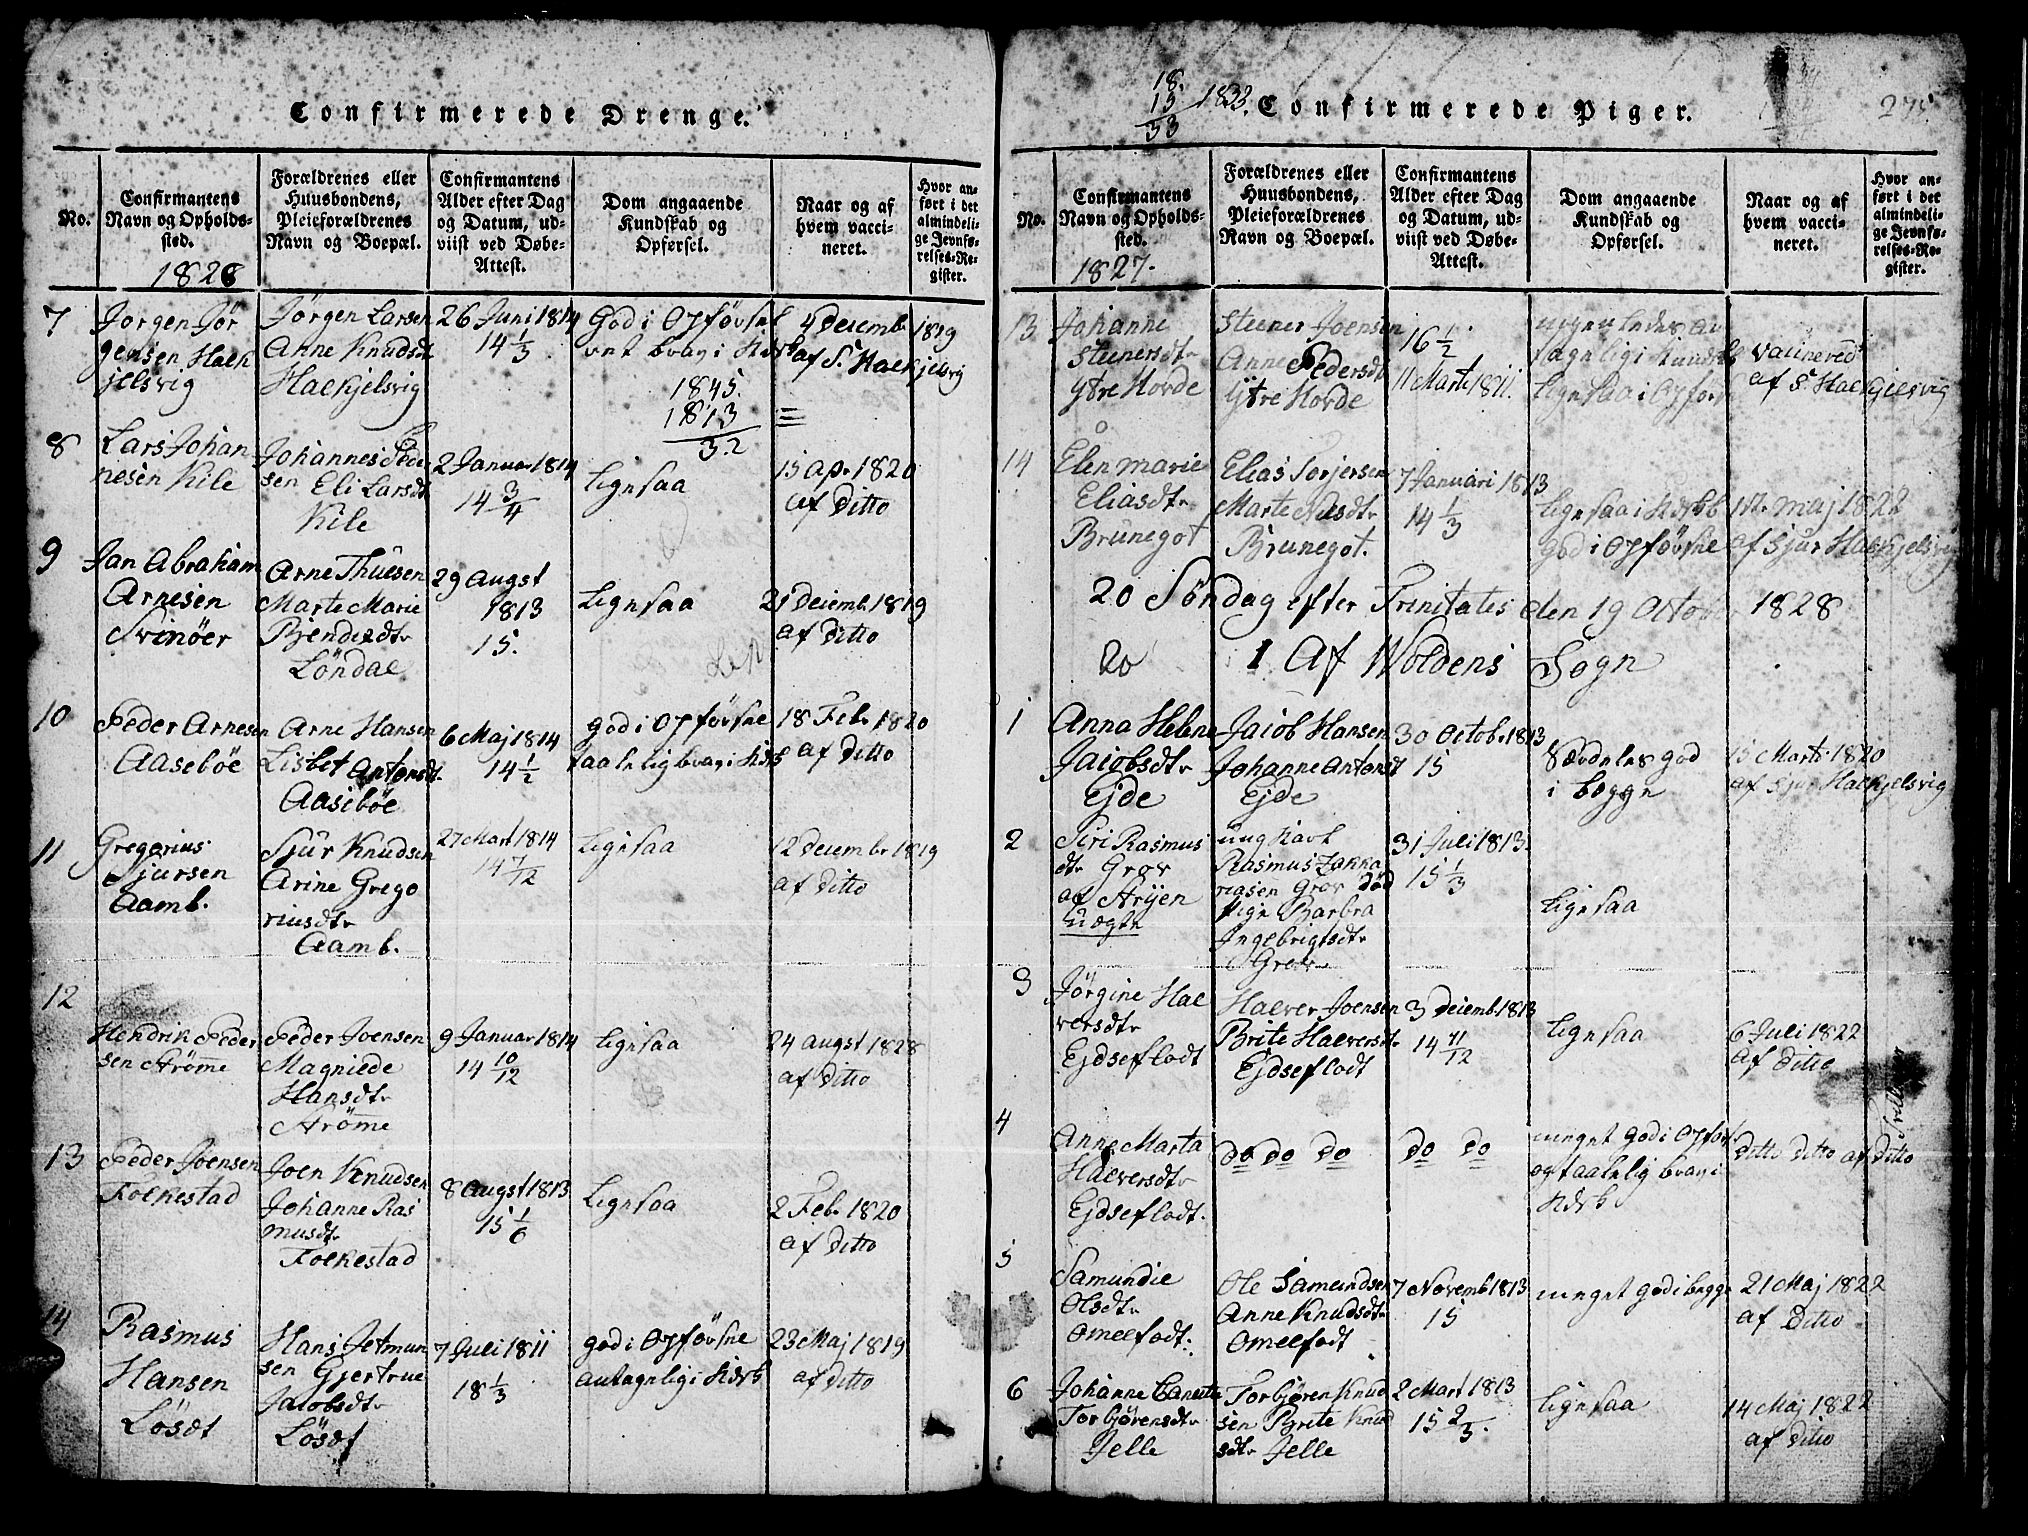 Confirmerede Drenge.
No.
Confirmantens
Navn og Opholds-
sted.
1828
Forældrenes eller
Huusbondens,
Pleieforældrenes
Navn og Boepæl.
Confirmantens
Alder efter Dag
og Datum, ud-
viist ved Døbe-
Attest.
Dom angaaende
Kundskab og
Opførsel.
Naar og af
hvem vacci-
neret.
Hvor an-
ført i det
almindeli-
ge Jevnfø-
relses-Re-
gister.
7
Jørgen Jør
gensen Hach
jelsvig
Jørgen Larsen
Anne Knudsdt
Hackjelsvig
26 Juni 1814
14 1/3
God i Opførsel
4 Decemb 1819
af S. Hackjelsvig
1845.
1813
32
8
Lars Johan
nesen Kile
Johannes Peder
sen Eli Larsdt
Kile
2 Januar 1814
14 3/4
Ligesaa
15 apr. 1820
af Ditto
9
Jan Abraham
Arnesen
Svinöer
Arne Thuesen
Marte Marie
Löndal
29 Augst
1813
15.
Ligesaa
21 Decemb 1819
af Ditto
10
Peder Arnesen
Aaseböe
Arne Hansen
Lisbet Antonsdt
Aaseböe
6 Maj 1814
14 1/2
god i Opførsel
taalelig brav i Kdsk
18 Feb. 1820
af Ditto
11
Gregorius
Sjursen
Aamb.
Sjur Knudsen
Arine Grego
riusdtr
Aamb.
27 Mart 1814
14 7/12
Ligesaa
12 Decemb 1819
af Ditto
12
Hendrik Peder
sen Strømme
Peder Joensen
Magniede
Hansdtr
Strømme
9 Januar 1814
14 10/12
Ligesaa
24 augst 1828
af Ditto
13
Peder Joensen
Folkestad
Joen Knudsen
Johanne Ras
musdtr
Folkestad
8 Augst 1813
15 1/6
Ligesaa
2 Feb. 1820
af Ditto
14
Rasmus
Hansen
Lösdt
Hans Jetmun
sen Gjertrue
Jacobsdtr
Lösdt
7 Juli 1811
18 1/3
god i Opførsel
antagelig i Kdsk
23 Maj 1819
af Ditto
18.
15
33
1833.
Confirmerede Piger.
275
No.
Confirmantens
Navn og Opholds-
sted.
1827.
Forældrenes eller
Huusbondens,
Pleieforældrenes
Navn og Boepæl.
Confirmantens
Alder efter Dag
og Datum, ud-
viist ved Døbe-
Attest.
Dom angaaende
Kundskab og
Opførsel.
Naar og af
hvem vacci-
neret.
Hvor an-
ført i det
almindeli-
ge Jevnfø-
relses-Re-
gister.
13
Johanne
Steenersdtr
Ytre Hovde
Steener Joensen
Anne Pedersdt
Ytre Hovde
16 1/2
11 Marti 1811.
ligesaa i Opfør
vacineret
af S. Hackjelsvig
14
Elen Marie
Eliasdtr
Brunegot
Elias Torjersen
Marte Nilsdtr
Brunegot.
7 Januari 1813
14 1/3
Ligesaa i Kdskb
God i Opførsel
12 maj 1822
af Sjur Hackjelsvig
20 Söndag efter Trinitates den 19 October 1828
20 1 Af Woldens Sogn
1
Anna Helene
Jacobsdtr
Ejde
Jacob Hansen
Johanne Antonsdt
Ejde
30 Octob. 1813
15
Særdeles god
i begge
15 Marti 1820
af Sjur Hackjelsvig
2
Siri Rasmus
dtr Grov
af Stryen
uægte
ung Karl
Rasmus Zakka
riasen Grov död
Pige Barbra
Ingebrigtsdtr
Grov
31 Juli 1813.
15 1/3
Ligesaa
3
Jørgine Hal
versdtr
Ejdseflodt
Halver Joensen
Brite Halversdtr
Ejdseflodt
3 Decemb. 1813
14 11/12
Ligesaa
6 Juli 1822
af Ditto
4
Anne Marta
Halversdtr
Ejdseflodt.
Do Do Do
Do Do
meget god i Opførs
og taalelig brav i
Kdsk
Ditto Ditto af Ditto
Tvillinger
5
Samundie
Olsdtr
Omelfodt.
Ole Samundsen
Anne Knudsdtr
Omelfodt
7 Novemb 1813
15
meget god i begge
21 Maj 1822
af Ditto
6
Johanne Canutte
Torbjørensdtr
Jelle
Torbjøren Knud
sen Brite Knud
sdtr Jelle
2 Mart 1813
15 2/3.
Ligesaa
14 Maj 1822
af Ditto